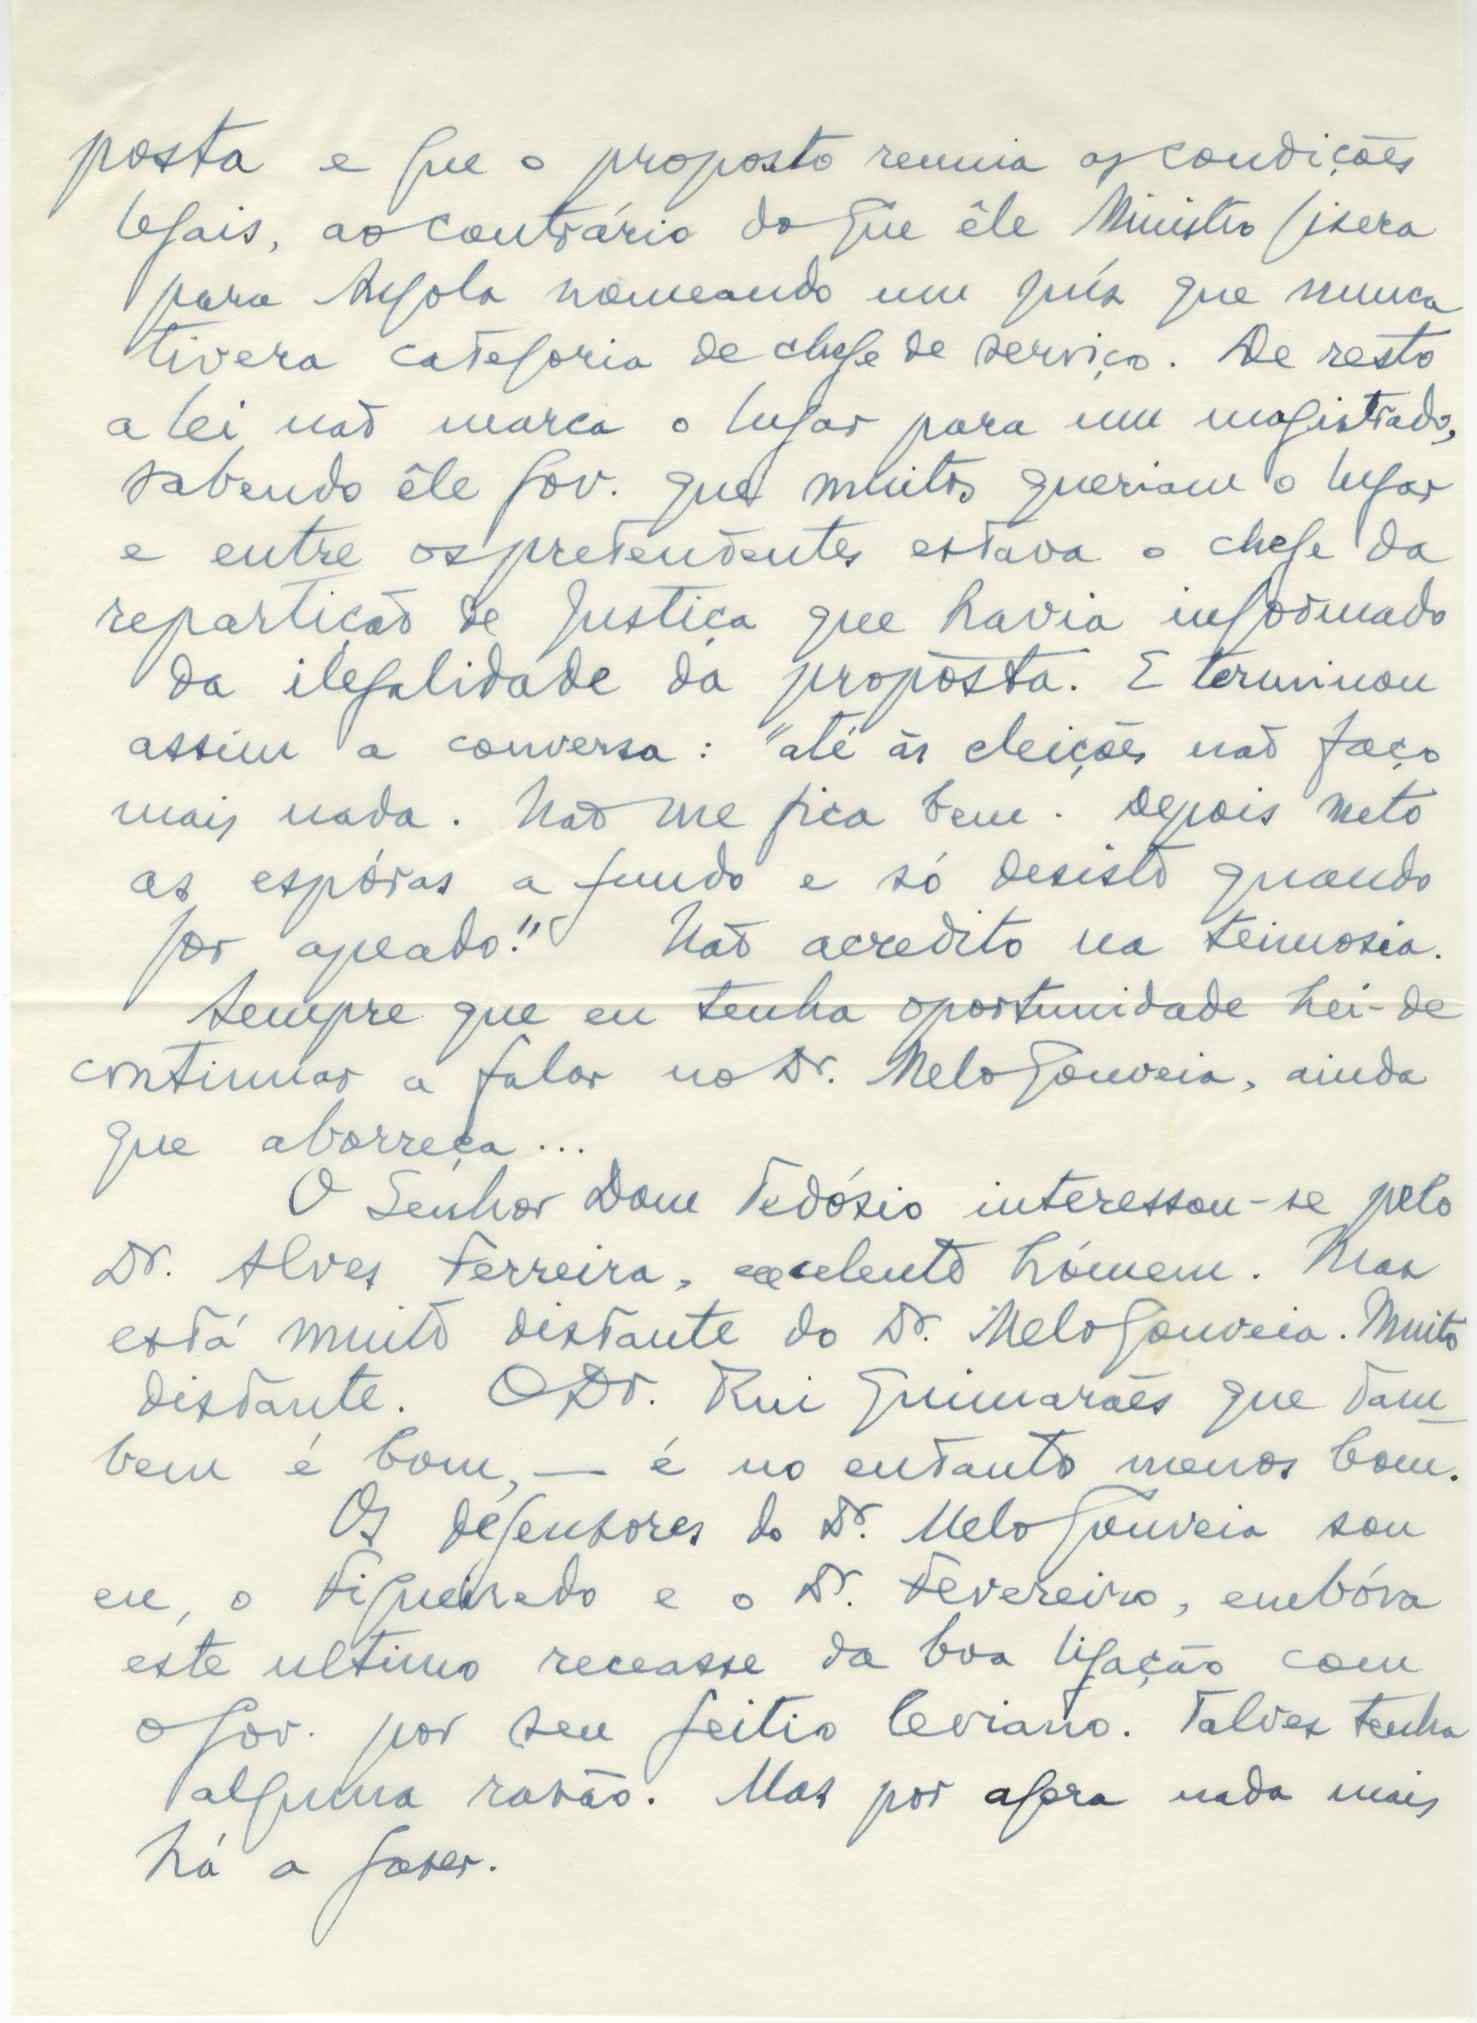 posta e que o proposto reunia as condições
legais, ao contrário do que êle Ministro fisera
para Angola nomeando um juís que nunca
tivera categoria de chefe de serviço. De resto
a lei não marca o lugar para um magistrado,
sabendo êle Gov. que muitos queriam o lugar
e entre os pretendentes estava o chefe da
repartição de Justiça que havia informado
da ilegalidade da propósta. E terminou
assim a conversa: "até às eleições não faço
mais nada. Não me fica bem. Depois meto
as espóras a fundo e só desisto quando
for apeado!" Não acredito na teimosia.
Sempre que eu tenha oportunidade hei-de
continuar a falar no Dr. Melo Gouveia, ainda
que aborreça...
O Senhor Dom Teodósio interessou-se pelo
Dr. Alves Ferreira, excelente hómem. Mas
está muito distante do Dr. Melo Gouveia. Muito
distante. O Dr. Rui Guimarães que tam-
bem é bom, — é no entanto menos bom.
Os defensores do Dr. Melo Gouveia sou
eu, o Figueiredo e o Dr. Fevereiro, embóra
este ultimo receasse da boa ligação com
o Gov. por seu feitio leviano. Talves tenha
alguma rasão. Mas por agora nada mais
há a faser.